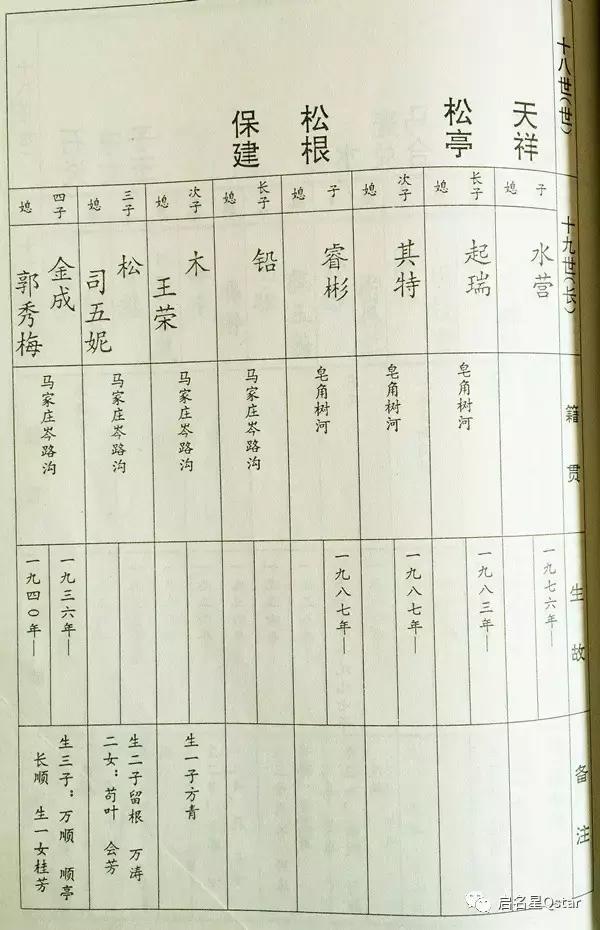 十八世(世)
天祥
松亭
松根
保建
十九世(长)
子
媳
水营
长子
媳
起瑞
次子
媳
其特
子
媳
睿彬
长子
媳
铅
次子
媳
木
王荣
三子
媳
松
司五妮
四子
媳
金成
郭秀梅
籍贯
皂角树河
皂角树河
皂角树河
马家庄岑路沟
马家庄岑路沟
马家庄岑路沟
马家庄岑路沟
生故
一九七六年—
一九八三年—
一九八七年—
一九八七年—
一九三六年—
一九四〇年—
备注
生一子方青
生二子留根 万涛
二女：苟叶 会芳
生三子：万顺 顺亭
长顺 生一女桂芳
启名星Qstar